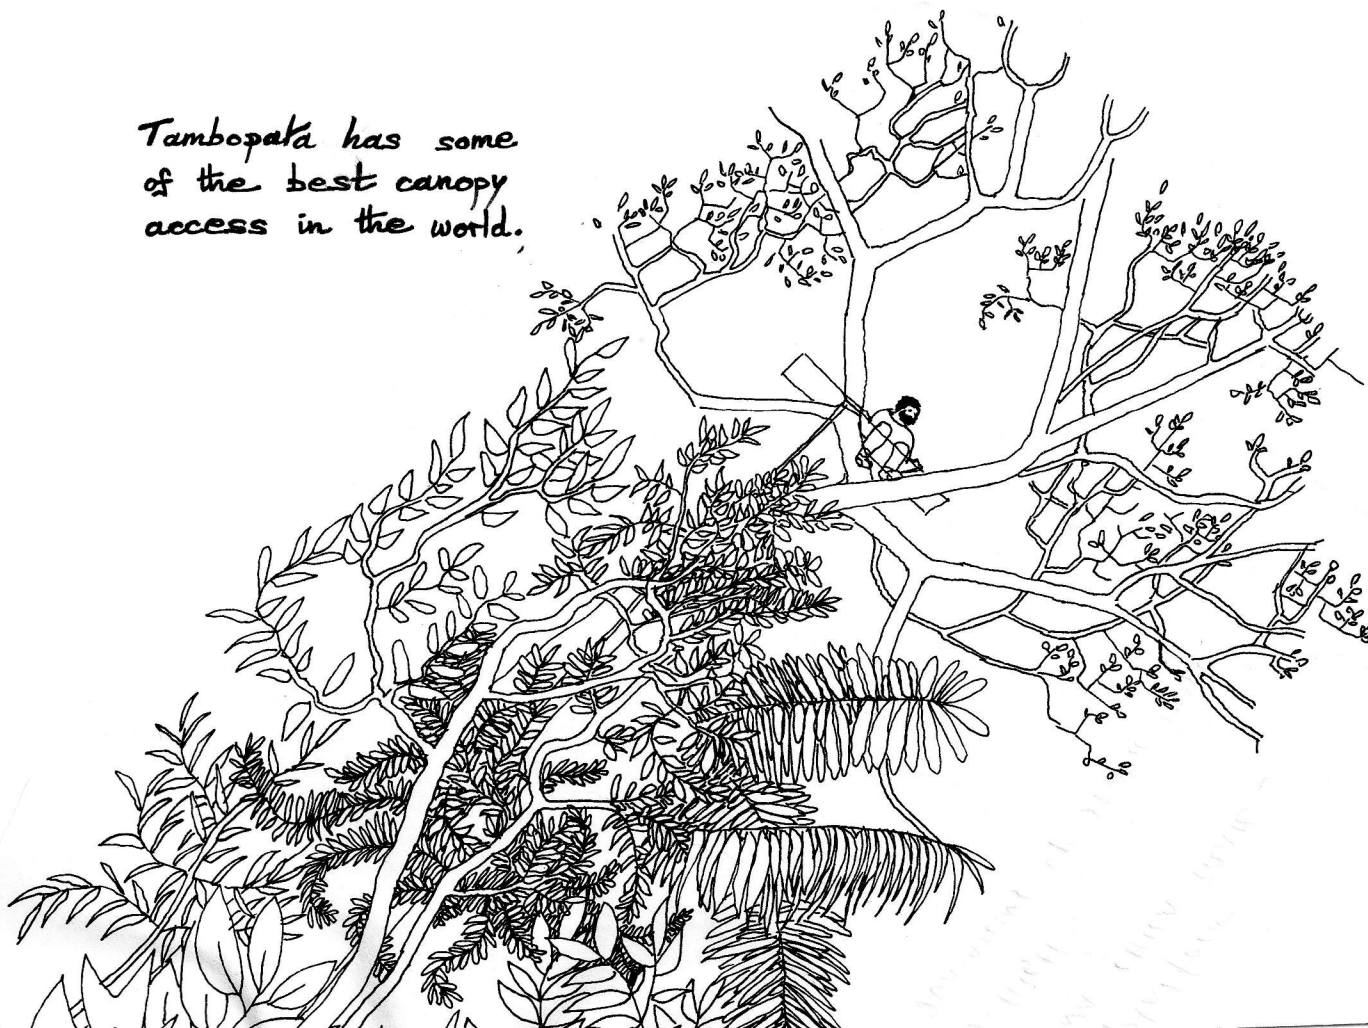 Tambopata has some
of the best canopy
access in the world.